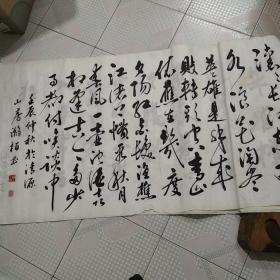 水浪花淘尽
英雄是非成
败转头空青山
依旧在几度
夕阳红白发渔樵
江渚上惯看秋月
春风一壶浊酒喜
相逢古今多少
事都付笑谈中
壬辰仲秋於清源
山房